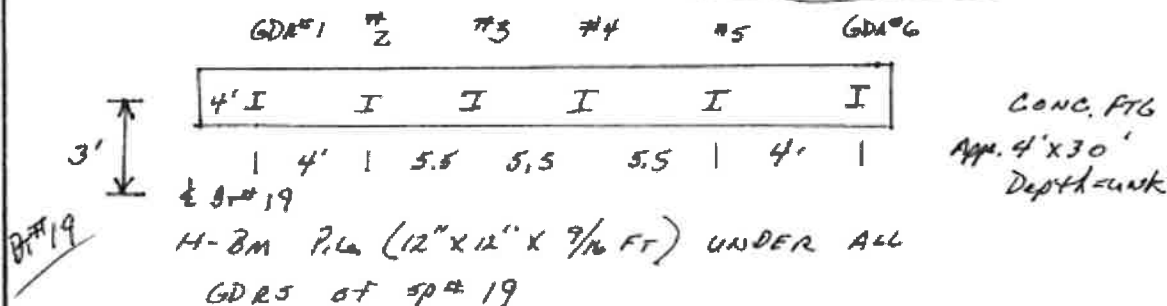 GDR#1 #2 #3 #4 #5 GDR#6
4' I I I I I I
CONC. FTG
3'
| 4' | 5.5 5.5 5.5 | 4' |
App. 4'x30'
Depth=unk
℄ BT# 19
BT#19
H-BM Pile (12" x 12" x 9/16 FT) UNDER ALL
GDRS of SP# 19